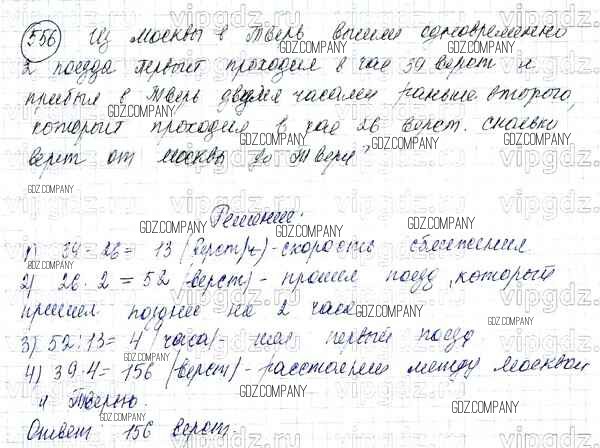 556 Из Москвы в Тверь вышли одновременно
2 поезда. Первый проходил в час 39 верст и
прибыл в Тверь двумя часами раньше второго,
который проходил в час 26 верст. Сколько
верст от Москвы до Твери?
Решение:
1) 39-26= 13 (верст/ч)-скорость сближения
2) 26·2=52 (верст)- прошел поезд, который
пришел позднее на 2 часа
3) 52:13=4 (часа)- шел первый поезд
4) 39·4=156 (верст)-расстояние между Москвой
и Тверью.
Ответ: 156 верст.
GDZ.COMPANY
vipgdz.com